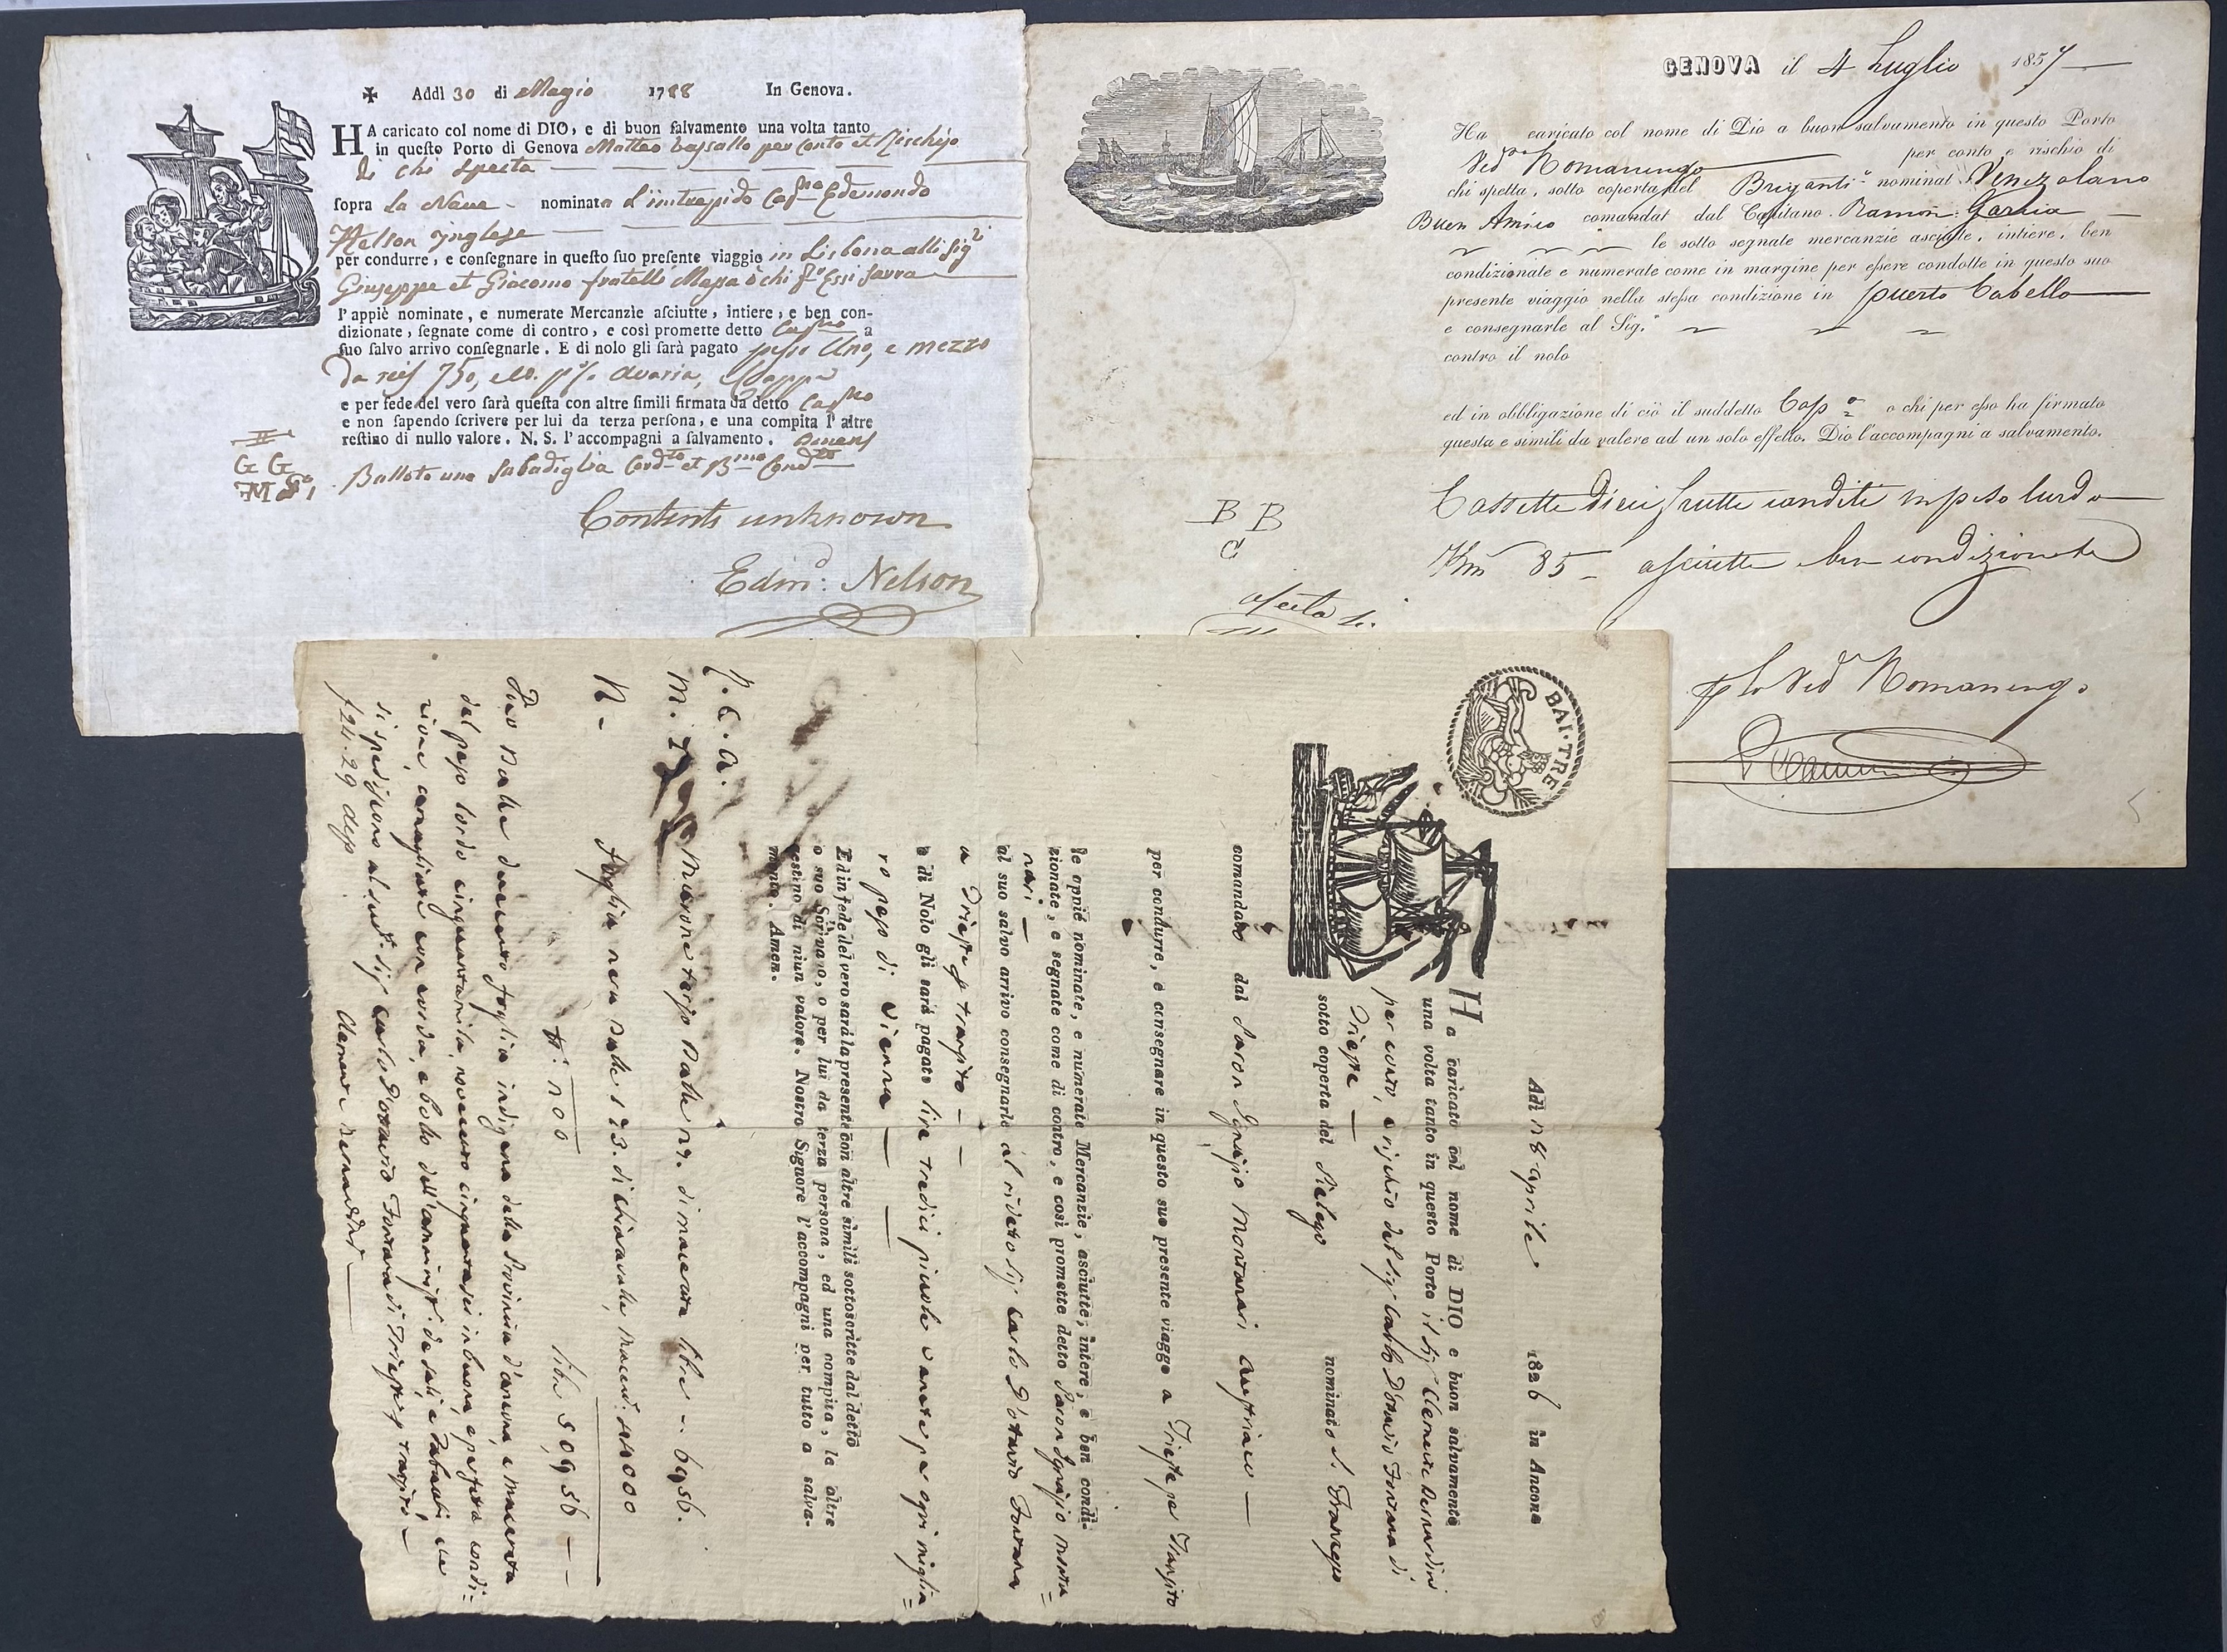 ✠ Addì 30 di Magio 1788 In Genova.
HA caricato col nome di DIO, e di buon salvamento una volta tanto
in questo Porto di Genova Matteo Vassallo per conto et Rischijo
di chi spetta
sopra La Nave nominata L'intrepido Capno Edemondo
Nelson inglese
per condurre, e consegnare in questo suo presente viaggio in Lisbona alli Sigri
Giuseppe et Giacomo fratelli Massa ò chi
l'appiè nominate, e numerate Mercanzie asciutte, intiere, e ben con-
dizionate, segnate come di contro, e così promette detto Capno a
suo salvo arrivo consegnarle. E di nolo gli sarà pagato pesso Uno, e mezzo
da reis 750, e 10. p% avaria, e Cappa
e per fede del vero sarà questa con altre simili firmata da detto Capno
e non sapendo scrivere per lui da terza persona, e una compita l'altre
restino di nullo valore. N. S. l'accompagni a salvamento. Amen
G G
Ballotto uno Sabadiglia Cordto et Bmo Condto
Contents unknown
Edmd: Nelson
GENOVA il 4 Luglio 1857
Ha caricato col nome di Dio a buon salvamento in questo Porto
Ved. Romanengo per conto e rischio di
chi spetta, sotto coperta del Brigantino nominat Venezolano
Buen Amico comandat dal Capitano Ramon Garcia
le sotto segnate mercanzie asciutte, intiere, ben
condizionate e numerate come in margine per essere condotte in questo suo
presente viaggio nella stessa condizione in Puerto Cabello
e consegnarle al Sig.r
contro il nolo
ed in obbligazione di ciò il suddetto Cap.o o chi per esso ha firmato
questa e simili da valere ad un solo effetto. Dio l'accompagni a salvamento.
B B
C
Cassette dieci frutti canditi in peso lurdo
85 asciutte ben condizionate
Ved Romanengo
BAI·TRE
Adì 18 aprile 1826 in Ancona
Ha caricato col nome di DIO e buon salvamento
una volta tanto in questo Porto il Sig. Clemente Bernardini
per conto, e rischio del Sig. Carlo D'Ottavio Fontana di
Trieste
sotto coperta del Pielego nominato S. Francesco
comandato dal Paron Ignazio Montanari Austriaco
per condurre, e consegnare in questo suo presente viaggo a Trieste per Transito
le appiè nominate, e numerate Mercanzie, asciutte, intere, e ben condi-
zionate, e segnate come di contro, e così promette detto Paron Ignazio Monta=
nari
al suo salvo arrivo consegnarle al ridetto Sig. Carlo D'Ottavio Fontana
a Trieste p transito
e di Nolo gli sarà pagato lire tredici piccole Venete per ogni miglia=
ro peso di Vienna
Ed in fede del vero sarà la presente con altre simili sottoscritte dal detto
o suo Scrivano, o per lui da terza persona, ed una compita, le altre
restino di niun valore. Nostro Signore l'accompagni per tutto a salva-
mento. Amen.
P. C. A.
M. Marone targo Balle 27. di macerata libre 6956.
N - Foglia nera Balle 173. di Chiaravalle, Macerta 44000
N: 200 libre 50956
Dico Balle duecento foglia indigena della Provincia d'Ancona, e Macerata
del peso lordo cinquantamila, novecento cinquantasei in buona, e perfetta condi=
zione, consegliate con corda, e bollo dell'amminist. de sali, e Tabachi che
si spediscono al sud. Sig. Carlo D'Ottavio Fontana di Trieste p transito
Clemente Bernardini